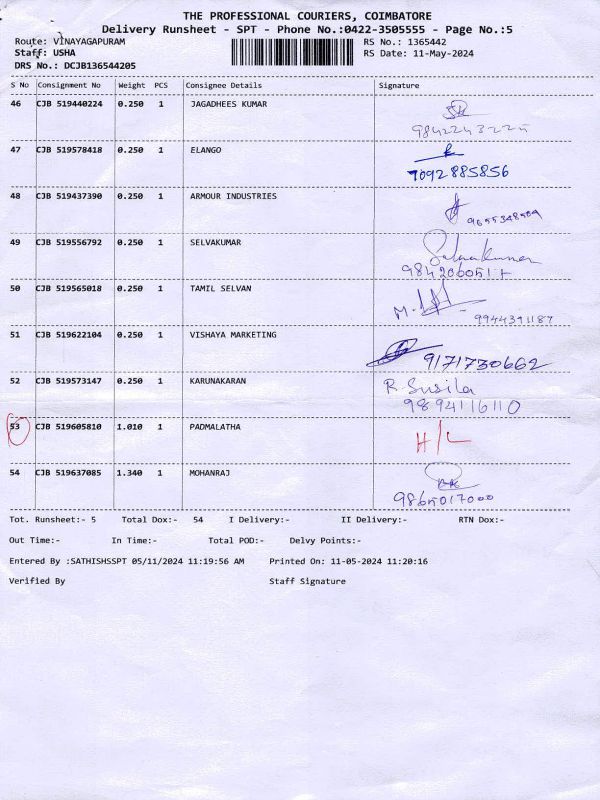 THE PROFESSIONAL COURIERS, COIMBATORE
Delivery Runsheet - SPT - Phone No.:0422-3505555 - Page No.:5
Route: VINAYAGAPURAM RS No.: 1365442
Staff: USHA RS Date: 11-May-2024
DRS No.: DCJB136544205
S No Consignment No Weight PCS Consignee Details Signature
46 CJB 519440224 0.250 1 JAGADHEES KUMAR
9842243225
47 CJB 519578418 0.250 1 ELANGO
7092885856
48 CJB 519437390 0.250 1 ARMOUR INDUSTRIES
49 CJB 519556792 0.250 1 SELVAKUMAR Selvakumar
50 CJB 519565018 0.250 1 TAMIL SELVAN
9944391187
51 CJB 519622104 0.250 1 VISHAYA MARKETING
9171730662
52 CJB 519573147 0.250 1 KARUNAKARAN R Susila
9894116110
53 CJB 519605810 1.010 1 PADMALATHA H/L
54 CJB 519637085 1.340 1 MOHANRAJ
9865017000
Tot. Runsheet:- 5 Total Dox:- 54 I Delivery:- II Delivery:- RTN Dox:-
Out Time:- In Time:- Total POD:- Delvy Points:-
Entered By :SATHISHSSPT 05/11/2024 11:19:56 AM Printed On: 11-05-2024 11:20:16
Verified By Staff Signature